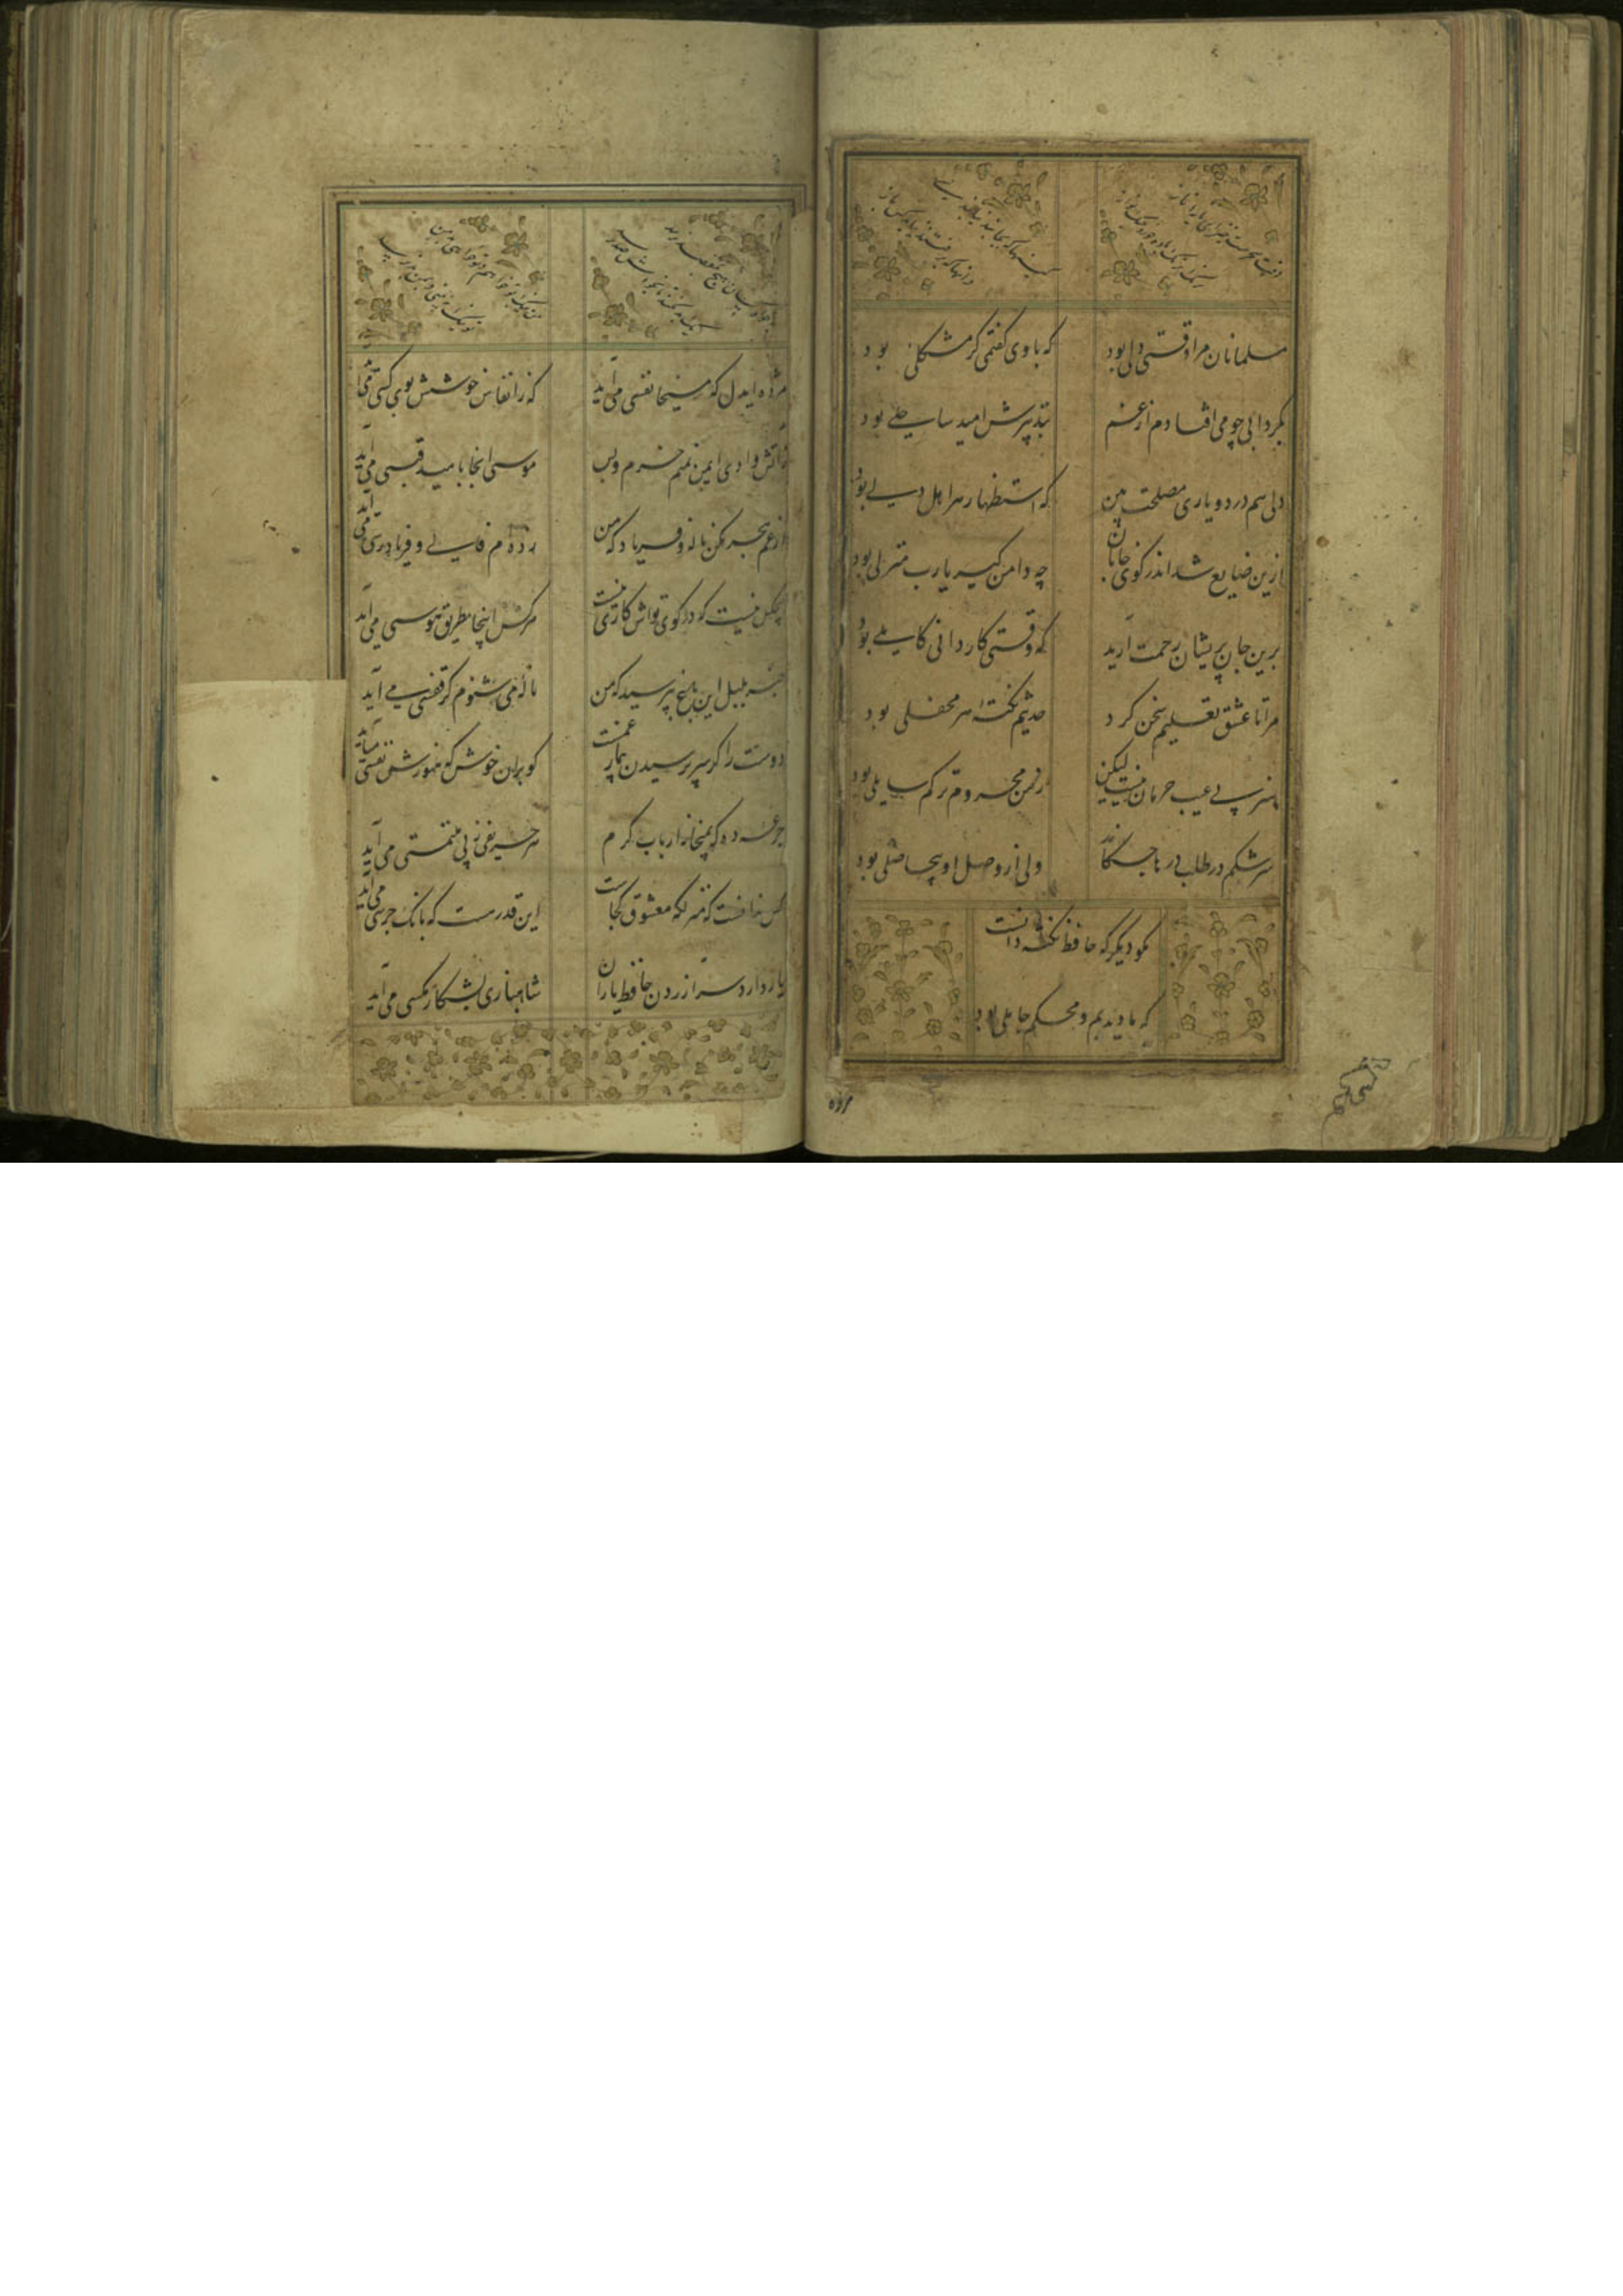 مسلمانان مرا وقتی دلی بود
که با وی گفتمی گر مشکلی بود
بگردابی چو می افتادم از غم
بتدبیرش امید ساحلی بود
دلی هم درد و یاری مصلحت بین
که استظهار هر اهل دلی بود
ازین ضایع شد اندر کوی جانان
چه دامن گیر یا رب منزلی بود
برین جان پریشان رحمت آرید
که وقتی کاردانی کاملی بود
مرا تا عشق تعلیم سخن کرد
حدیثم نکته هر محفلی بود
هنر بی عیب حرمان نیست لیکن
ز من محروم تر کم سایلی بود
سرشکم در طلب درها چکاند
ولی از وصل او بیحاصلی بود
مگو دیگر که حافظ نکته دانست
که ما دیدیم و محکم جاهلی بود
مژده ایدل که مسیحا نفسی می آید
که ز انفاس خوشش بوی کسی می آید
ز آتش وادی ایمن نه منم خرم و بس
موسی اینجا بامید قبسی می آید
از غم هجر مکن ناله و فریاد که من
زده ام فالی و فریادرسی می آید
هیچکس نیست که در کوی تواش کاری نیست
هر کس اینجا بطریق هوسی می آید
خبر بلبل این باغ بپرسید که من
ناله می شنوم کز قفسی می آید
دوست را گر سر پرسیدن بیمار غمست
گو بران خوش که هنوزش نفسی می آید
جرعه ده که بمیخانه ارباب کرم
هر حریفی ز پی ملتمسی می آید
کس ندانست که منزلگه معشوق کجاست
این قدر هست که بانگ جرسی می آید
یار دارد سر آزردن حافظ یاران
شاهبازی بشکار مگسی می آید